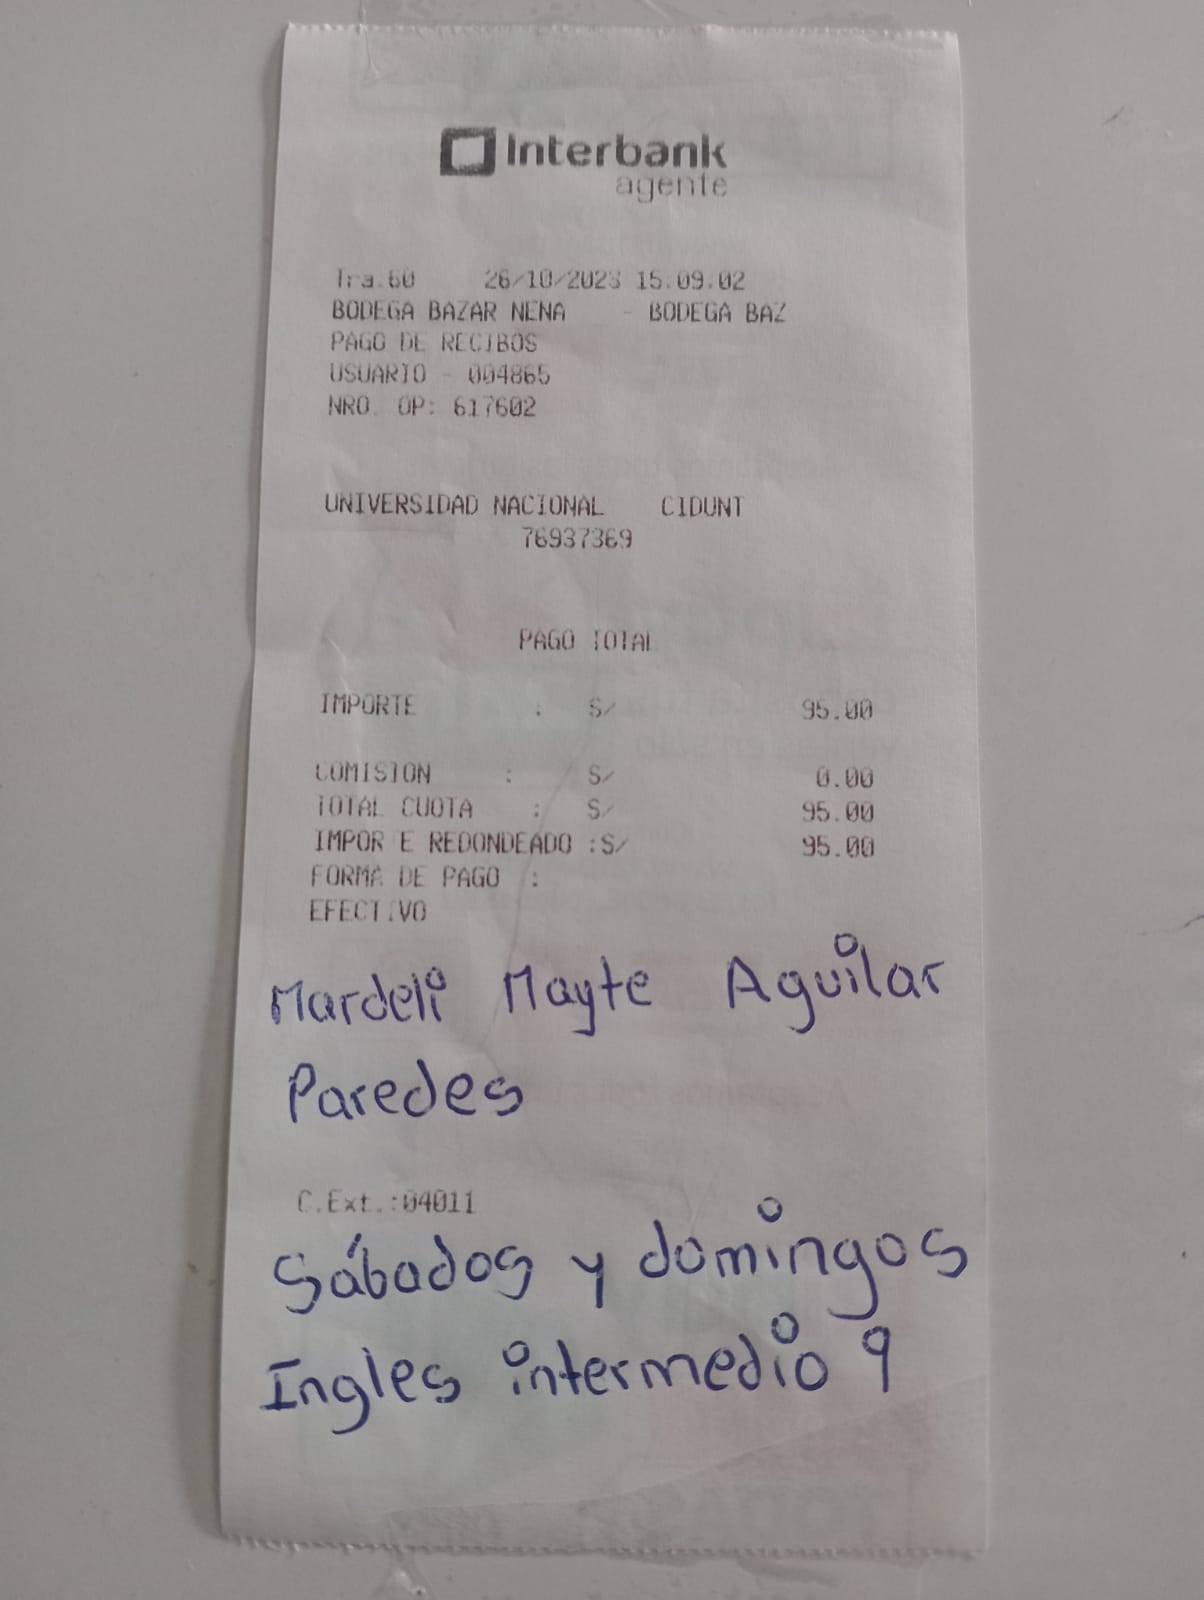 Interbank
agente
Tra.60 26/10/2023 15:09:02
BODEGA BAZAR NENA - BODEGA BAZ
PAGO DE RECIBOS
USUARIO - 004865
NRO. OP: 617602
UNIVERSIDAD NACIONAL CIDUNT
76937369
PAGO TOTAL
IMPORTE : S/ 95.00
COMISION : S/ 0.00
TOTAL CUOTA : S/ 95.00
IMPOR E REDONDEADO :S/ 95.00
FORMA DE PAGO :
EFECTIVO
Mardeli Mayte Aguilar
Paredes
C.Ext.:04011
Sábados y domingos
Ingles intermedio 9